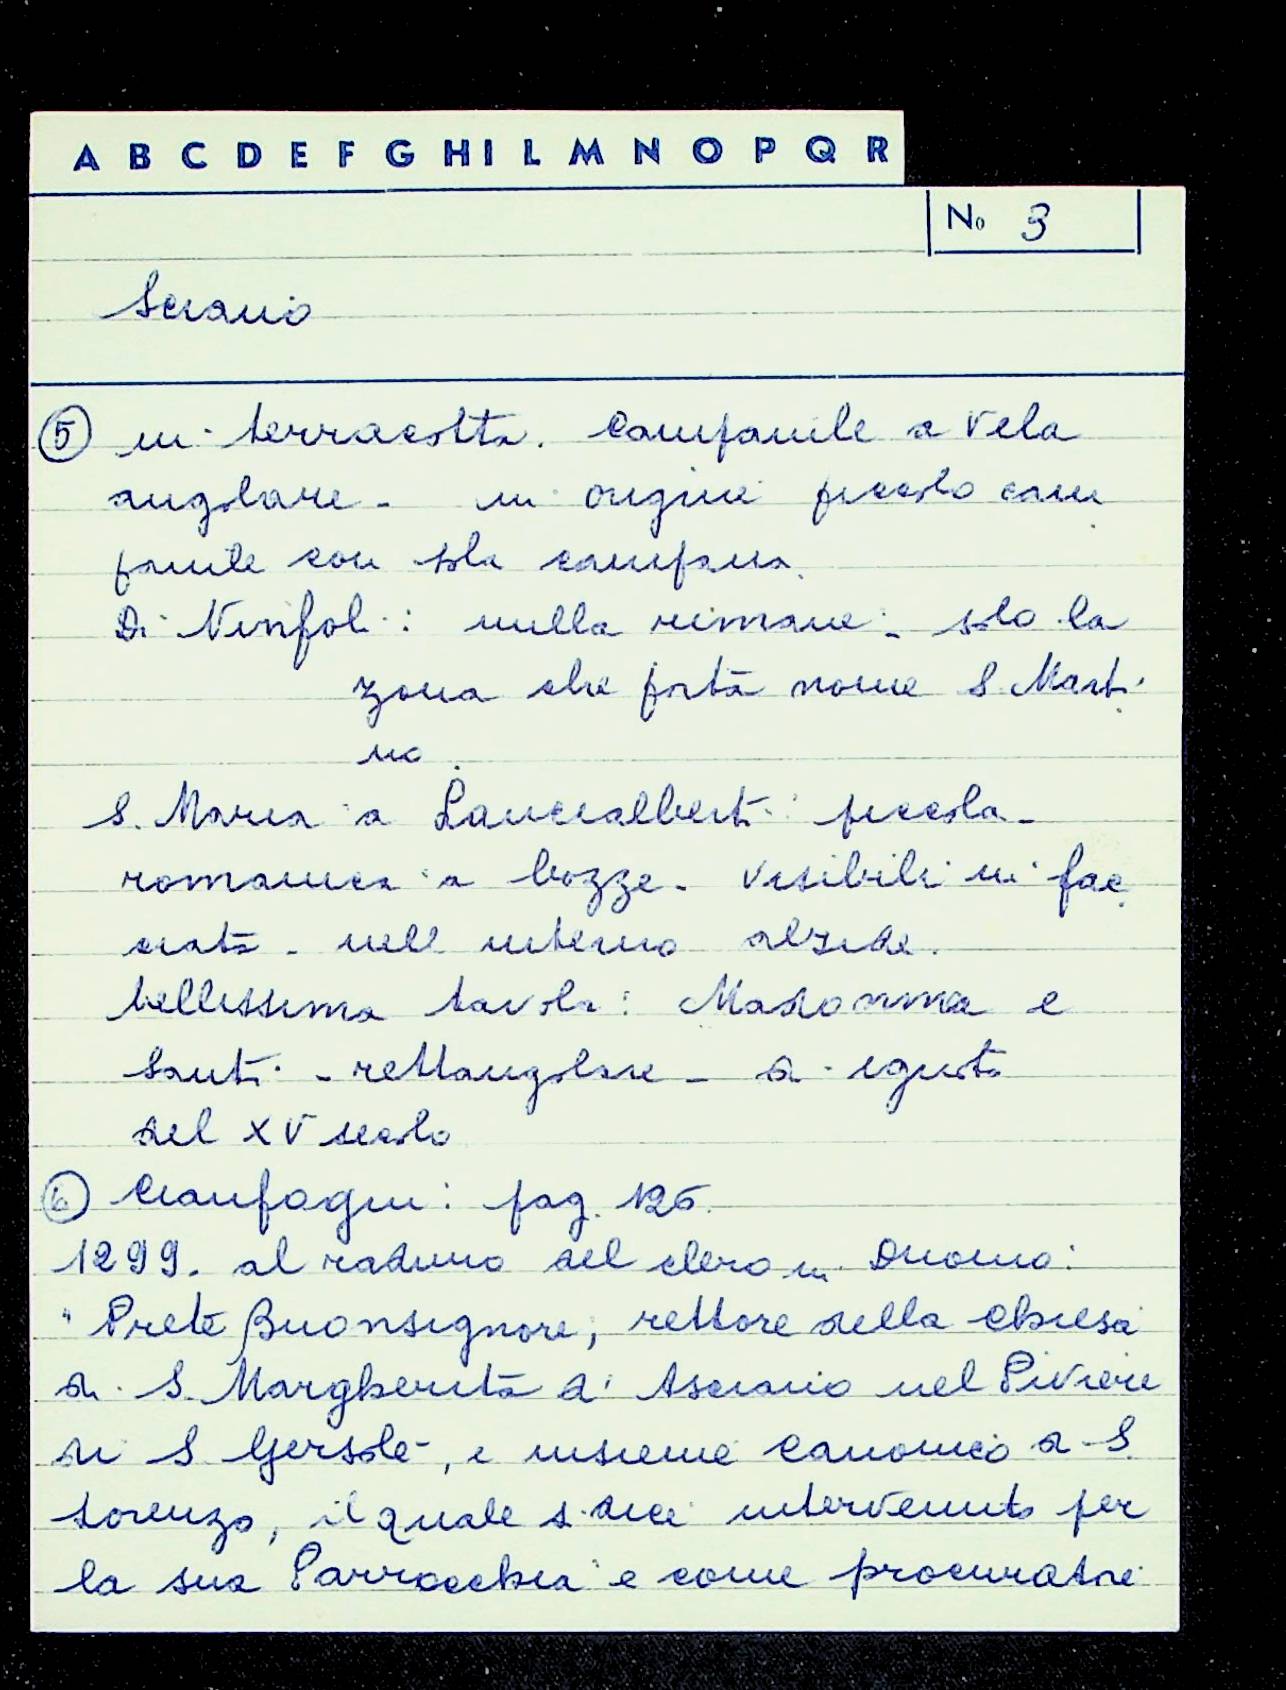 A B C D E F G H I L M N O P Q R
No 3
Sciano
5 in terracotta. Campanile a vela
angolare - in origine piccolo cam
panile con sola campana.
Di Ninfoli: nulla rimane - solo la
zona che porta nome S. Marti
no.
S. Maria a Lancialberti: piccola -
romanica a bozze - visibili in fac
ciata - nell interno abside.
bellissima tavola: Madonna e
Santi - rettangolare - di ignoto
del XV secolo
6 Cianfogni: pag. 126.
1299. al raduno del clero in Duomo:
"Prete Buonsignore, rettore della Chiesa
di S. Margherita a' Asciano nel Piviere
di S Gersolè, e insieme canonico di S.
Lorenzo, il quale si dice intervenuto per
la sua Parrocchia e come procuratore